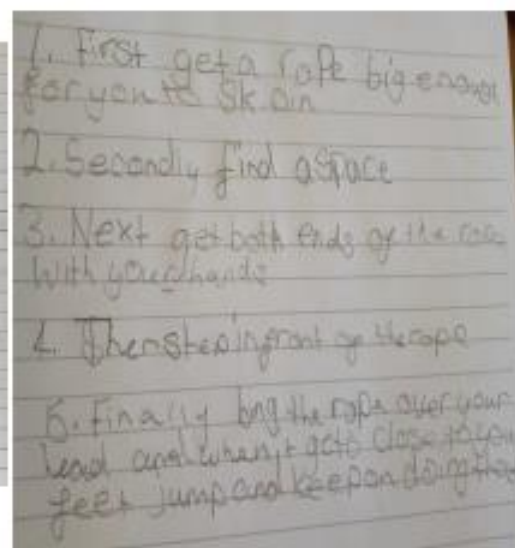 1. First get a rope big enough
for you to sk in
2. Secondly find a space
3. Next get both ends of the rope
with your hands
4. Then step in front of the rope
5. Finally bring the rope over your
head and when it gets close to you
feet jump and keep on doing that